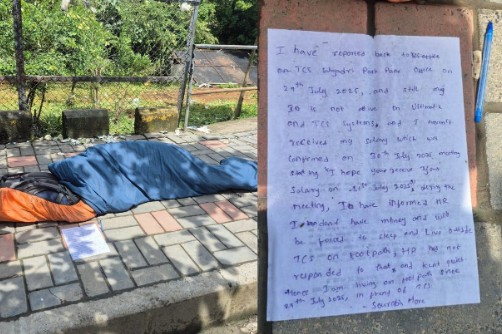 I have reported back to
on TCS Sahyadri Park Pune Office on
29th July 2025, and still my
ID is not active on Ultimatix
and TCS systems, and I
received my salary which was
confirmed on 30th July 2025 meeting
hope
Salary on 31st July 2025, during the
meeting, I have informed HR
I don't have money and will
be forced to sleep and live outside
TCS on footpath, HR had not
responded to that, and kept
I am living on footpath since
29th July 2025, in front of TCS
- Saurabh More